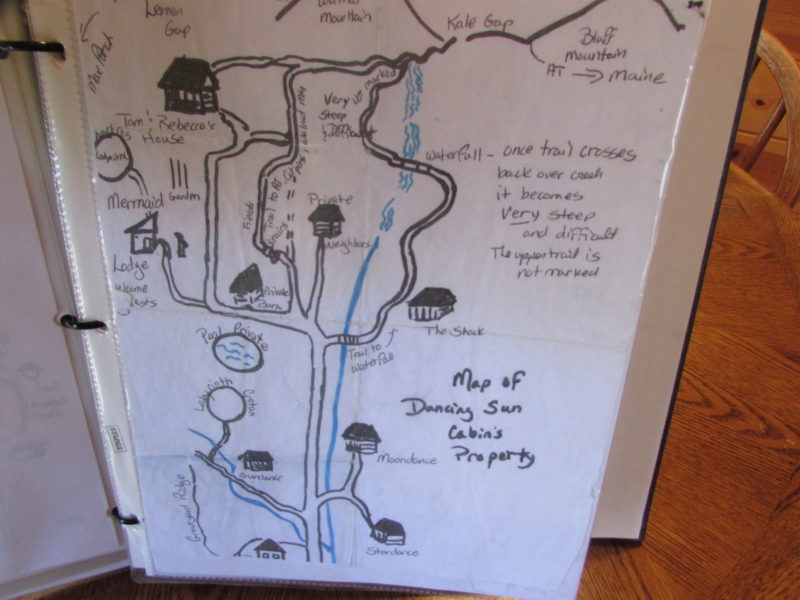 Lemon
Gap
Mountain
Kale Gap
Bluff
Mountain
AT → Maine
Max Patch
Tom & Rebecca's
House
Very
Steep
Difficult
not marked
Waterfall - once trail crosses
back over creek
it becomes
Very steep
and difficult
The upper trail is
not marked
Mermaid
Garden
Lodge
Welcome
Fields
Trail to AT
Private
Neighbors
Private
Barn
The Shack
Trail to
Waterfall
Pool Private
Labyrinth
Map of
Dancing Sun
Cabin's
Property
Moondance
Sundance
Graveyard Ridge
Stardance
STAPLES